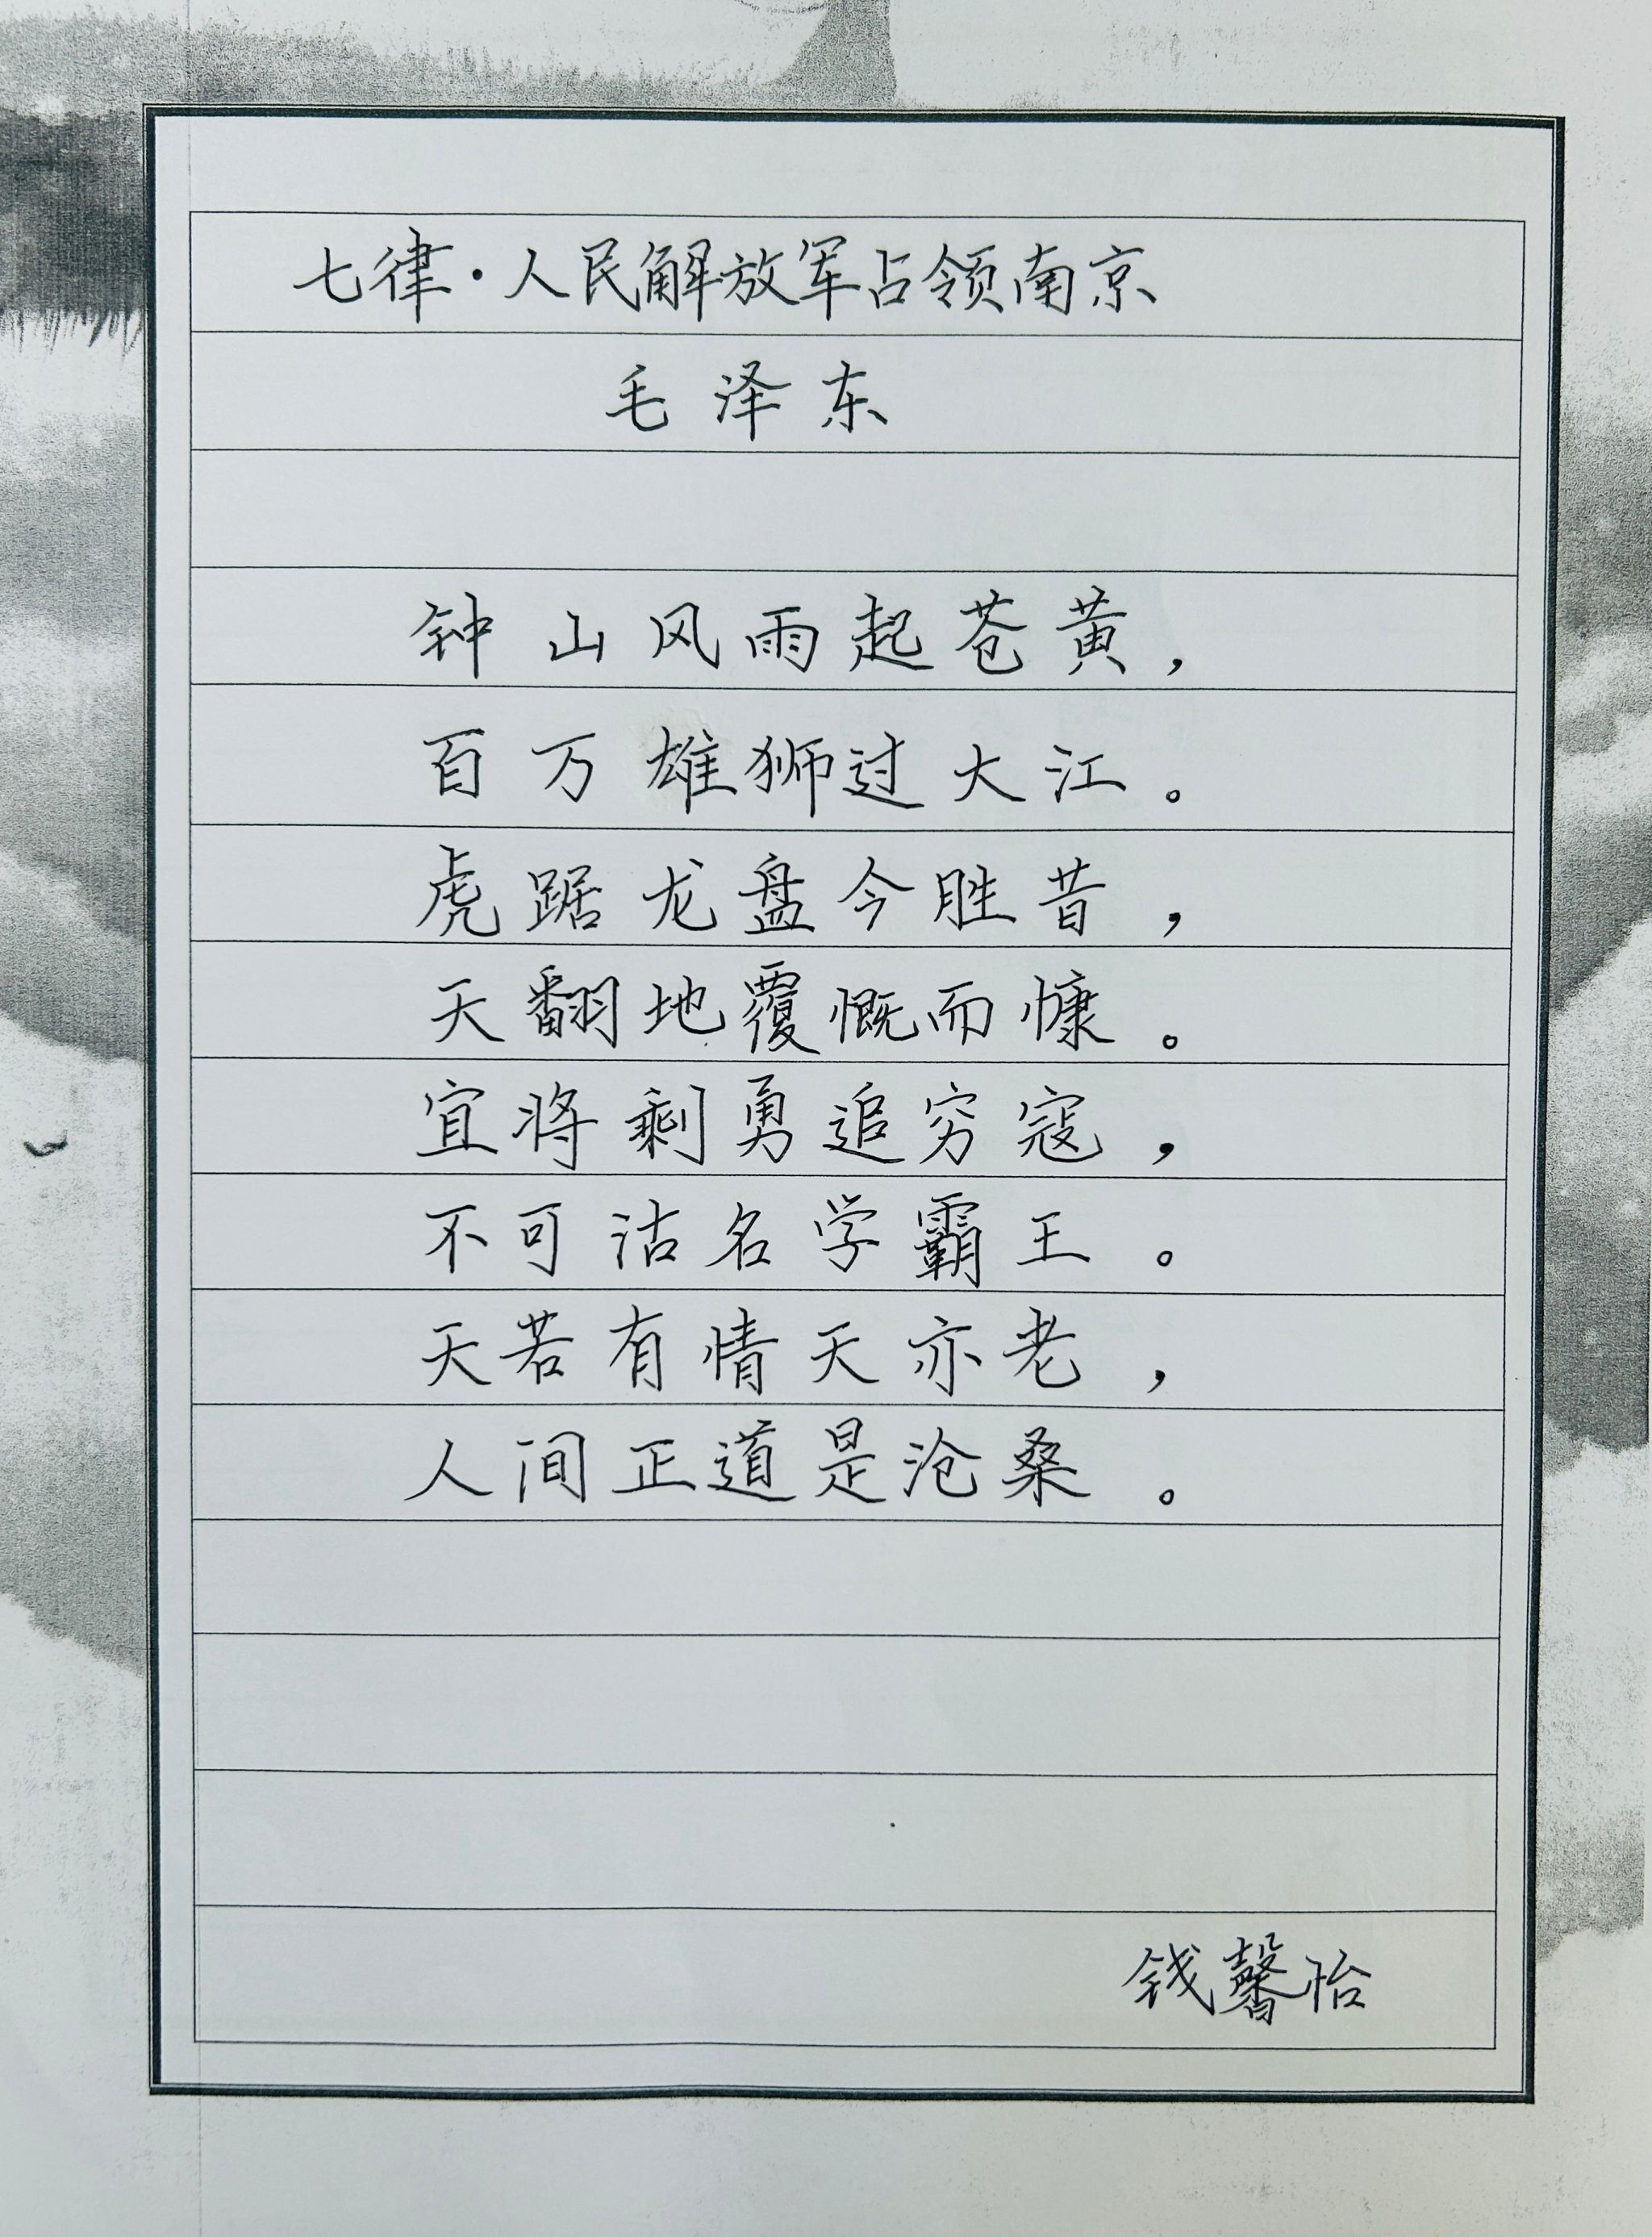 七律·人民解放军占领南京
毛泽东
钟山风雨起苍黄，
百万雄狮过大江。
虎踞龙盘今胜昔，
天翻地覆慨而慷。
宜将剩勇追穷寇，
不可沽名学霸王。
天若有情天亦老，
人间正道是沧桑。
钱馨怡